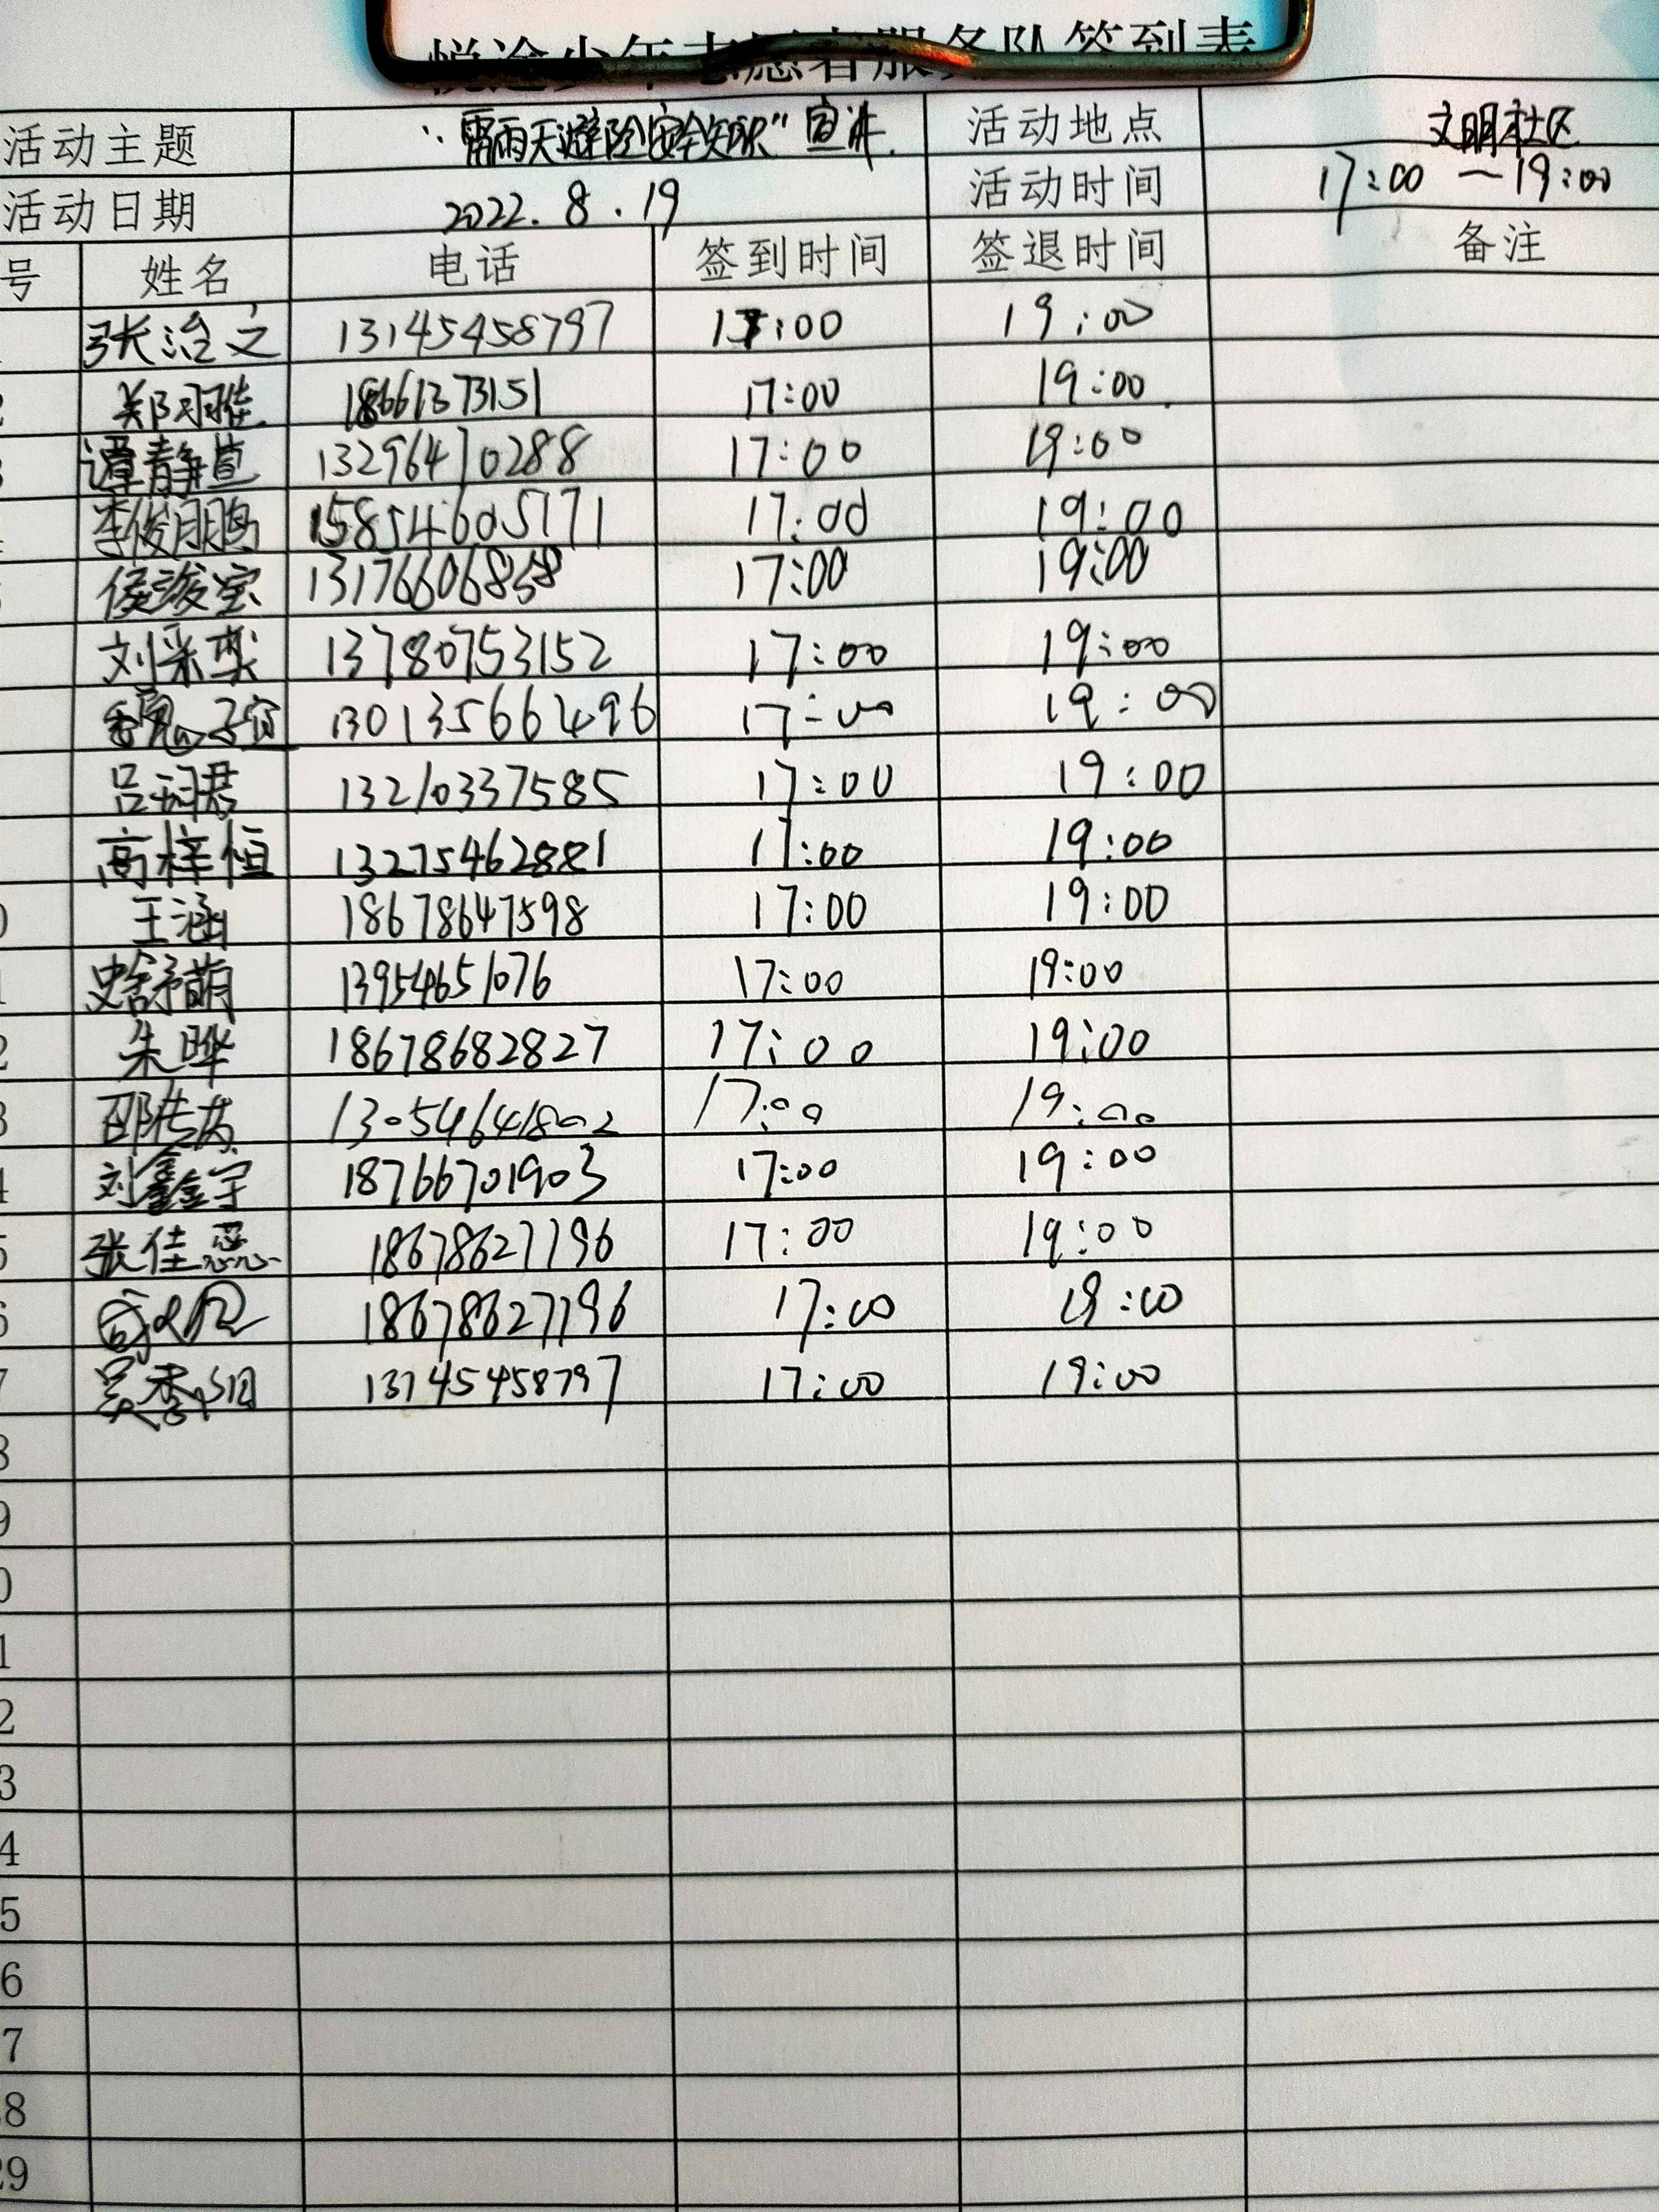 悦途少年志愿者服务队签到表
活动主题 "雷雨天避险安全知识"宣讲 活动地点 文明社区
活动日期 2022.8.19 活动时间 17:00—19:00
号 姓名 电话 签到时间 签退时间 备注
张治文 13145458797 17:00 19:00
2 郑羽雅 18661373151 17:00 19:00
3 谭静萱 13296470288 17:00 19:00
李俊鹏 15854605771 17:00 19:00
侯竣宝 17:00 19:00
刘采奕 13780753152 17:00 19:00
17:00 19:00
吕 君 13210337585 17:00 19:00
高梓恒 13275462881 17:00 19:00
0 王涵 18678647598 17:00 19:00
1 史舒萌 13954651076 17:00 19:00
2 朱晔 18678682827 17:00 19:00
3 邵 13054641802 17:00 19:00
4 刘鑫宇 18766701903 17:00 19:00
5 张佳蕊 18678627196 17:00 19:00
6 18678627196 17:00 19:00
7 吴秀娟 13145458797 17:00 19:00
8
9
0
1
2
3
4
5
6
7
8
29